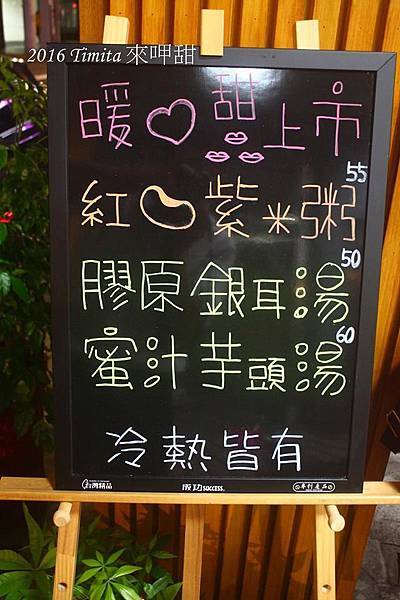 2016 Timita 來呷甜
暖♡甜上市
55
紅紫米粥
50
膠原銀耳湯
60
蜜汁芋頭湯
冷熱皆有
台灣精品 成功 SUCCESS. 專利產品